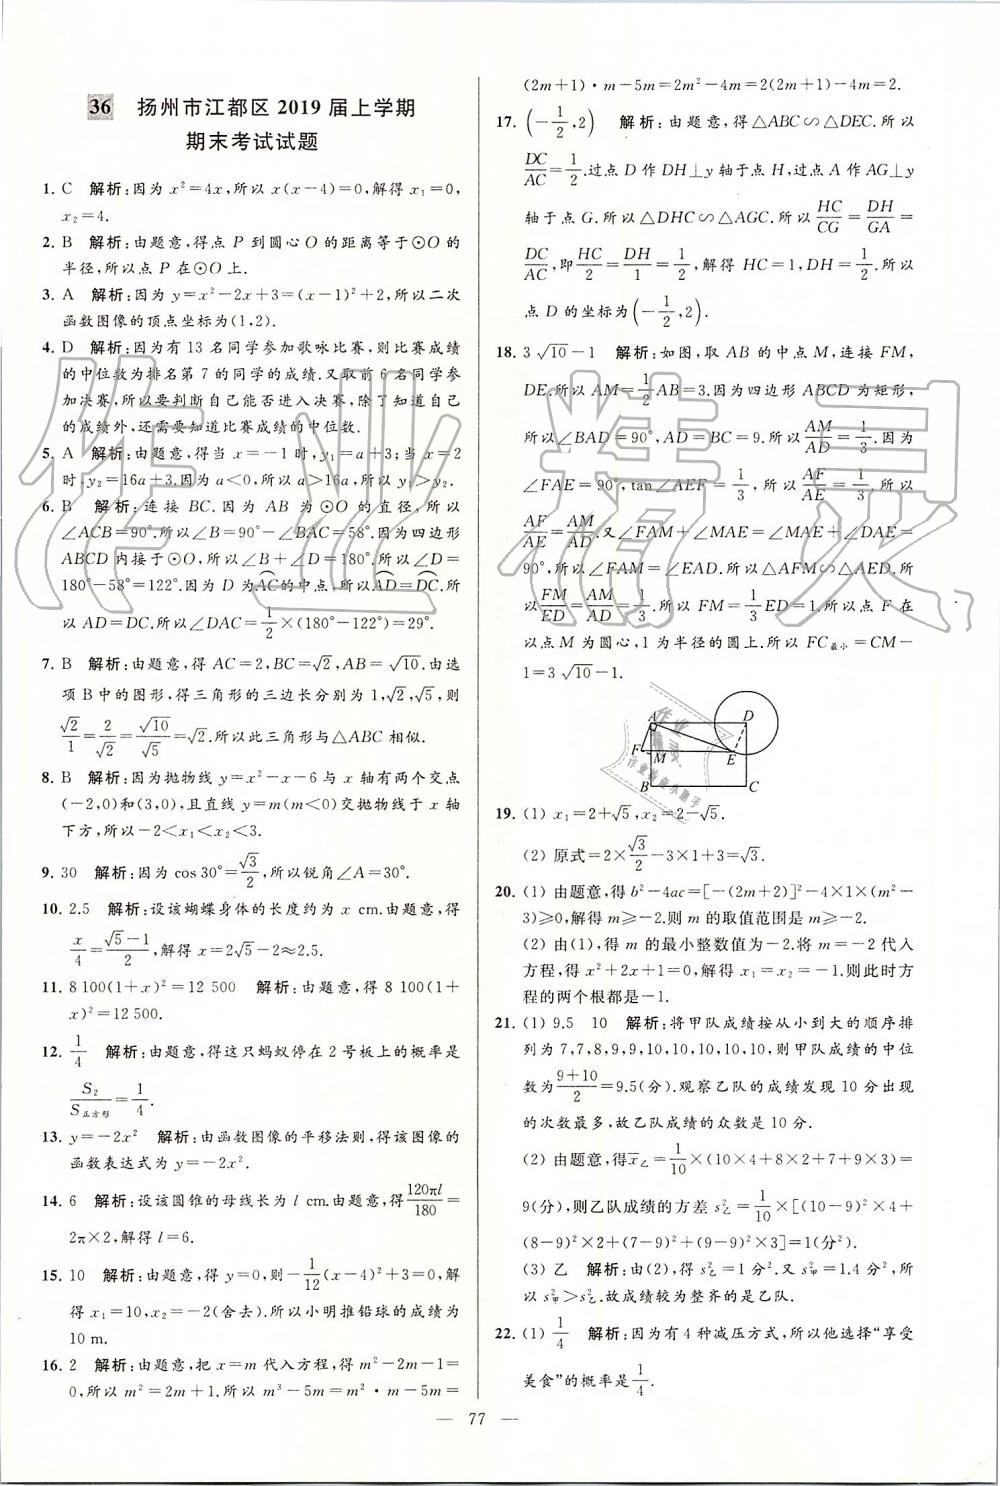 36 扬州市江都区 2019 届上学期
期末考试试题
1. C 解析:因为 x²=4x,所以 x(x-4)=0,解得 x₁=0,
x₂=4.
2. B 解析:由题意,得点 P 到圆心 O 的距离等于⊙O 的
半径,所以点 P 在⊙O 上.
3. A 解析:因为 y=x²-2x+3=(x-1)²+2,所以二次
函数图像的顶点坐标为(1,2).
4. D 解析:因为有 13 名同学参加歌咏比赛,则比赛成绩
的中位数为排名第 7 的同学的成绩.又取前 6 名同学参
加决赛,所以要判断自己能否进入决赛,除了知道自己
的成绩外,还需要知道比赛成绩的中位数.
5. A 解析:由题意,得当 x=-1 时,y₁=a+3;当 x=2
时,y₂=16a+3.因为 a<0,所以 a>16a,所以 y₁>y₂.
6. B 解析:连接 BC.因为 AB 为⊙O 的直径,所以
∠ACB=90°.所以∠B=90°-∠BAC=58°.因为四边形
ABCD 内接于⊙O,所以∠B+∠D=180°.所以∠D=
180°-58°=122°.因为 D 为⌒AC的中点,所以⌒AD=⌒DC.所
以 AD=DC.所以∠DAC=1/2×(180°-122°)=29°.
7. B 解析:由题意,得 AC=2,BC=√2,AB=√10.由选
项 B 中的图形,得三角形的三边长分别为 1,√2,√5,则
√2/1=2/√2=√10/√5=√2.所以此三角形与△ABC 相似.
8. B 解析:因为抛物线 y=x²-x-6 与 x 轴有两个交点
(-2,0)和(3,0),且直线 y=m(m<0)交抛物线于 x 轴
下方,所以-2<x₁<x₂<3.
9. 30 解析:因为 cos 30°=√3/2,所以锐角∠A=30°.
10. 2.5 解析:设该蝴蝶身体的长度约为 x cm.由题意,得
x/4=(√5-1)/2,解得 x=2√5-2≈2.5.
11. 8 100(1+x)²=12 500 解析:由题意,得 8 100(1+
x)²=12 500.
12. 1/4 解析:由题意,得这只蚂蚁停在 2 号板上的概率是
S₂/S正方形=1/4.
13. y=-2x² 解析:由函数图像的平移法则,得该图像的
函数表达式为 y=-2x².
14. 6 解析:设该圆锥的母线长为 l cm.由题意,得120πl/180=
2π×2,解得 l=6.
15. 10 解析:由题意,得 y=0,则-1/12(x-4)²+3=0,解
得 x₁=10,x₂=-2(舍去).所以小明推铅球的成绩为
10 m.
16. 2 解析:由题意,把 x=m 代入方程,得 m²-2m-1=
0,所以 m²=2m+1.所以 m³-5m=m²·m-5m=
(2m+1)·m-5m=2m²-4m=2(2m+1)-4m=2.
17. (-1/2,2) 解析:由题意,得△ABC∽△DEC.所以
DC/AC=1/2.过点 D 作 DH⊥y 轴于点 H,过点 A 作 AG⊥y
轴于点 G.所以△DHC∽△AGC.所以HC/CG=DH/GA=
DC/AC,即HC/2=DH/1=1/2,解得 HC=1,DH=1/2.所以
点 D 的坐标为(-1/2,2).
18. 3√10-1 解析:如图,取 AB 的中点 M,连接 FM,
DE.所以 AM=1/2AB=3.因为四边形 ABCD 为矩形,
所以∠BAD=90°,AD=BC=9.所以AM/AD=1/3.因为
∠FAE=90°,tan∠AEF=1/3,所以AF/AE=1/3.所以
AF/AE=AM/AD.又∠FAM+∠MAE=∠MAE+∠DAE=
90°,所以∠FAM=∠EAD.所以△AFM∽△AED.所
以FM/ED=AM/AD=1/3.所以 FM=1/3ED=1.所以点 F 在
以点 M 为圆心,1 为半径的圆上.所以 FC最小=CM-
1=3√10-1.
A D
F M E
B C
19. (1) x₁=2+√5,x₂=2-√5.
(2) 原式=2×√3/2-3×1+3=√3.
20. (1) 由题意,得 b²-4ac=[-(2m+2)]²-4×1×(m²-
3)≥0,解得 m≥-2.则 m 的取值范围是 m≥-2.
(2) 由(1),得 m 的最小整数值为-2.将 m=-2 代入
方程,得 x²+2x+1=0,解得 x₁=x₂=-1.则此时方
程的两个根都是-1.
21. (1) 9.5 10 解析:将甲队成绩按从小到大的顺序排
列为 7,7,8,9,9,10,10,10,10,10,则甲队成绩的中位
数为(9+10)/2=9.5(分).观察乙队的成绩发现 10 分出现
的次数最多,故乙队成绩的众数是 10 分.
(2) 由题意,得x̄乙=1/10×(10×4+8×2+7+9×3)=
9(分),则乙队成绩的方差 s²乙=1/10×[(10-9)²×4+
(8-9)²×2+(7-9)²+(9-9)²×3]=1(分²).
(3) 乙 解析:由(2),得 s²乙=1 分².又 s²甲=1.4 分²,所
以 s²甲>s²乙.故成绩较为整齐的是乙队.
22. (1) 1/4 解析:因为有 4 种减压方式,所以他选择“享受
美食”的概率是1/4.
— 77 —
作业精灵